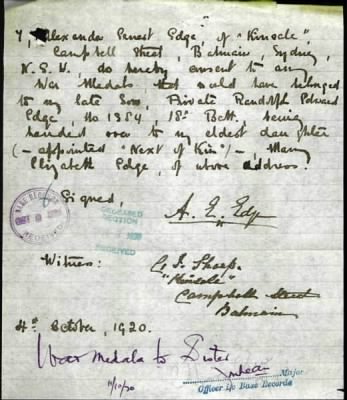 I, Alexander Ernest Edge, of "Kinsale"
Campbell Street, Balmain, Sydney,
N.S.W., do hereby consent to any
War Medals that would have belonged
to my late Son, Private Randolph Edward
Edge, No 1384, 18th Batt., being
handed over to my eldest daughter
(- appointed "Next of Kin") -, Mary
Elizabeth Edge, of above address.
Signed,
A. E. Edge
BASE RECORDS
RECEIVED
DECEASED
SECTION
1920
Witness:
"Kinsale"
Campbell Street
Balmain
4th October, 1920.
War medals to Sister
11/10/20
Major
Officer i/c Base Records